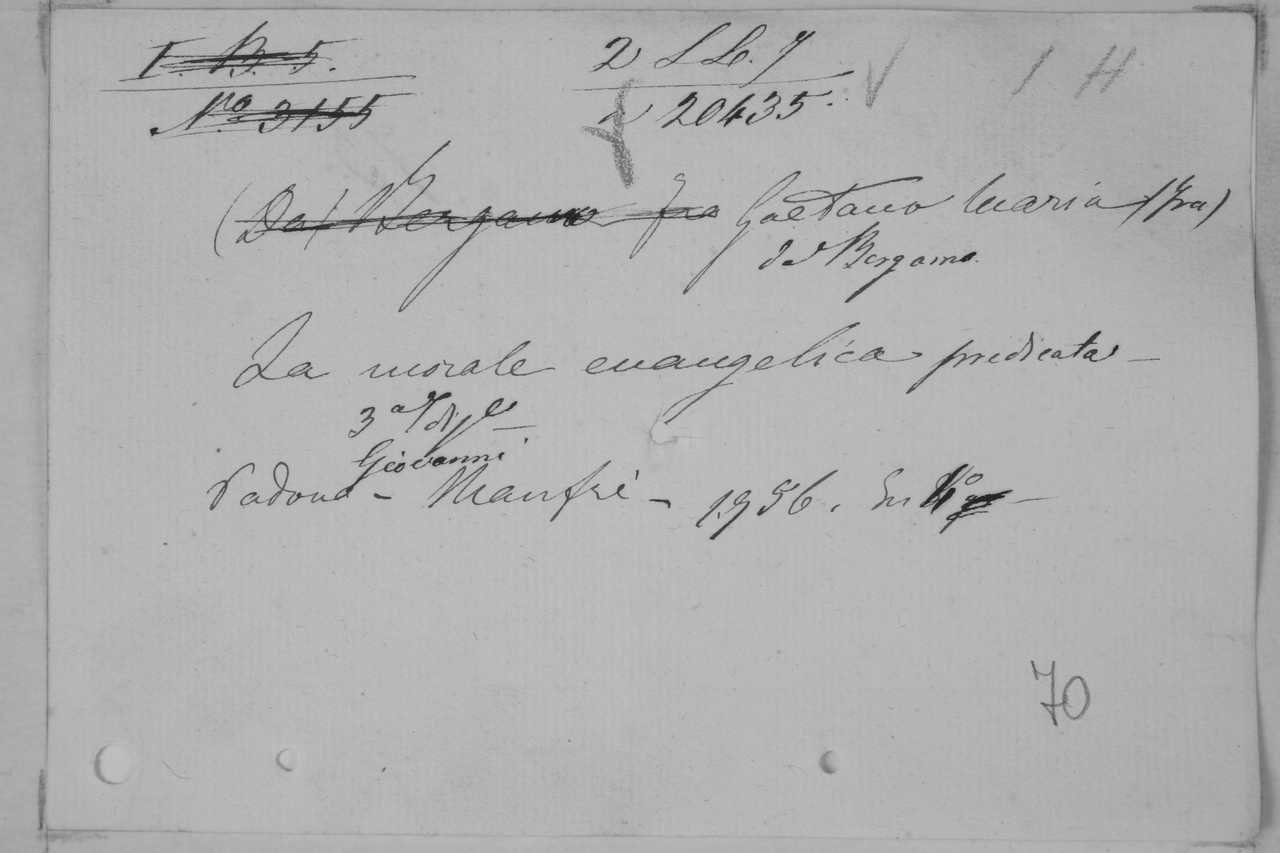 I. B. 5. 2 L L. 7 V 1 H
Nro 3155 20435.
(Da) Bergamo fra Gaetano Maria (Fra)
da Bergamo.
La morale evangelica predicata —
3a Ediz. —
Giovanni
Padova - Manfrè - 1756. In 4o —
70